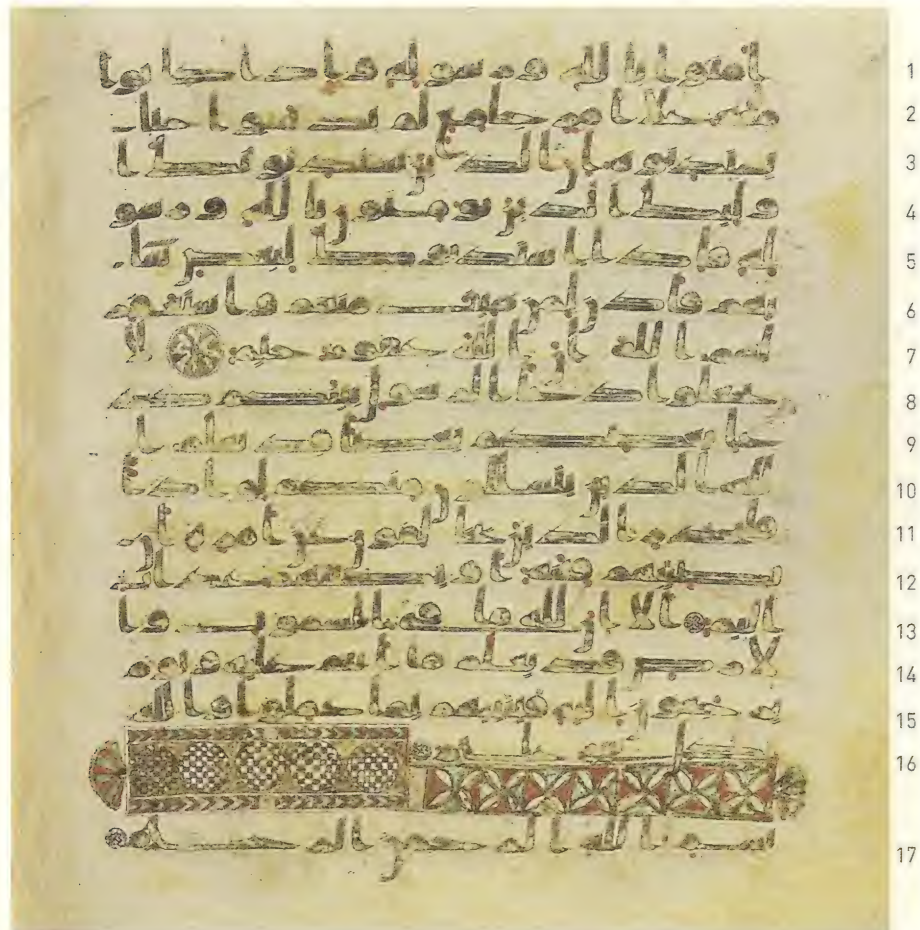 امنوا بالله ورسوله واذا كانوا 1
معه على امر جامع لم يذهبوا حتى 2
يستذنوه ان الذين يستذنونك ا 3
وليك الذين يومنون بالله ورسو 4
له فاذا استذنوك لبعض شا 5
نهم فاذن لمن شيت منهم واستغفر 6
لهم الله ان الله غفور رحيم لا 7
تجعلوا دعا الرسول بينكم كد 8
عا بعضكم بعضا قد يعلم ا 9
لله الذين يتسللون منكم لواذا 10
فليحذر الذين يخالفون عن امره ان 11
تصيبهم فتنة او يصيبهم عذاب 12
اليم الا ان لله ما في السموت وا 13
لارض قد يعلم ما انتم عليه ويوم 14
يرجعون اليه فينبيهم بما عملوا والله 15
بكل شي عليم 16
بسم الله الرحمن الرحيم 17